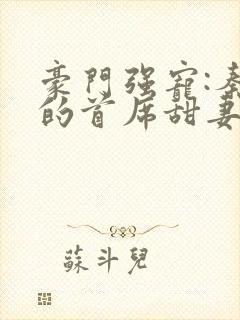 豪門强寵:秦
的首席甜妻
蘇斗兒